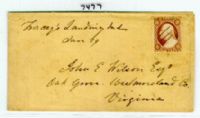 7477
Tracey's Landing Md
Jan 69
John E Wilson Esqr
Oak Grove Westmoreland Co.
Virginia